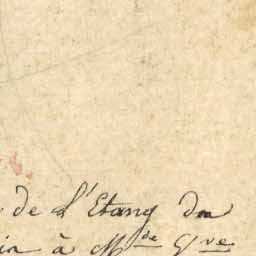 de l'Etang du
in à M^de V^ve